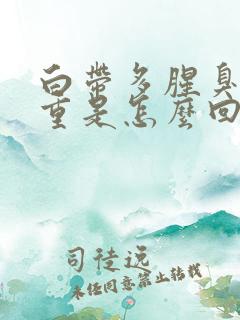 白带多腥臭
重是怎么回
司徒说
未经同意禁止转载